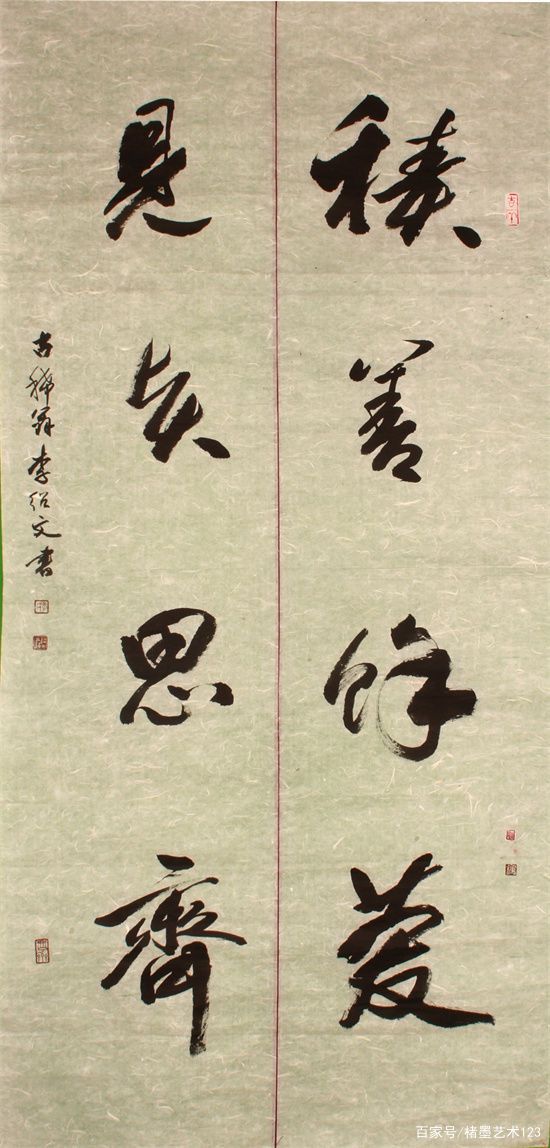 積善餘慶
見賢思齊
古稀翁李紹文書
百家号/楮墨艺术123